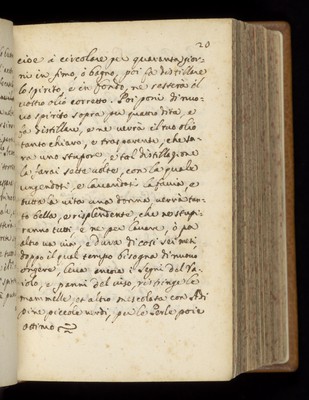 20
cioe à circolare per quaranta gior-
ni in fimo, ò bagno, poi fà distillare
lo spirito, e in fondo, ne resterà il
vostro olio corretto. Poi poni di nuo-
vo spirito sopra, per quatro dita, e
fà distillare, e ne verrà il tuo olio
tanto chiaro, e trasparente, che sa-
rà uno stupore, e tal distillazione
la farai sette volte, con la quale
ungendoti, e lavandoti la faccia, e
tutta la vita una donna verrà tan-
to bella, e risplendente, che ne stupi-
ranno tutti, e ne per lavare, ò per
altro va via, e dura di così sei mesi,
doppo il qual tempo bisogna di nuovo
ongere, leva ancora i segni del Va-
iolo, e panni del viso, ristringe le
mammelle, et altro mescolata con
pine piccole verdi, per le Perle poi è
ottimo